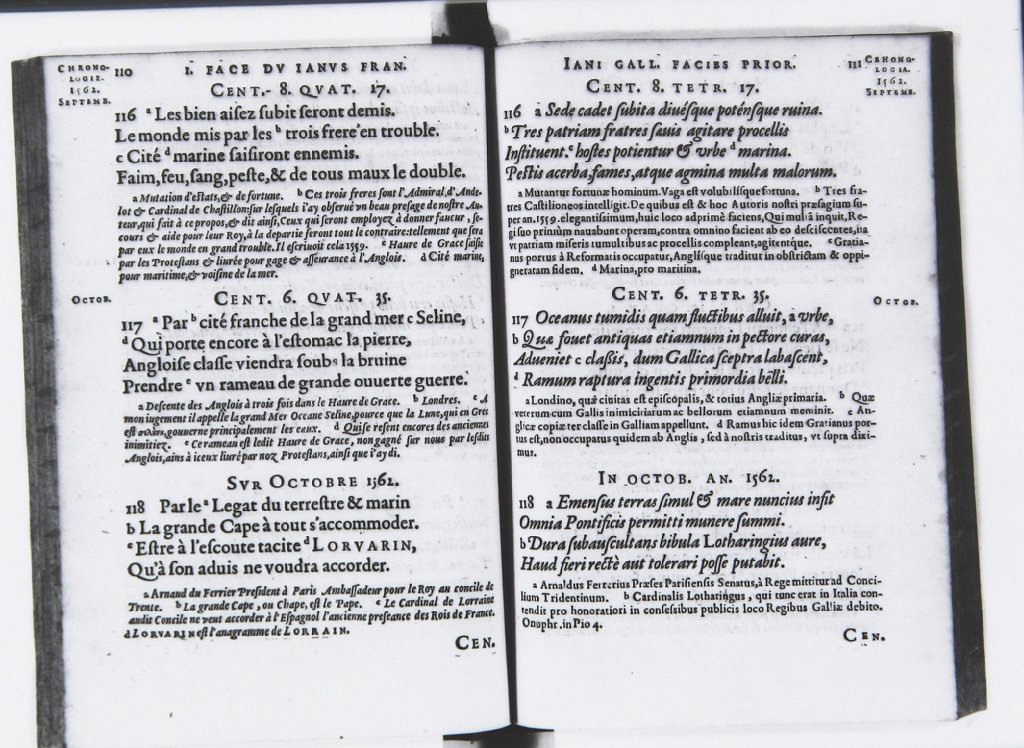 CHRONO-
LOGIE.
1562.
SEPTEMB.
110 I. FACE DV IANVS FRAN.
CENT. 8. QVAT. 17.
116 a Les bien aisez subit seront demis.
Le monde mis par les b trois frere'en trouble.
c Cité d marine saisiront ennemis.
Faim, feu, sang, peste, & de tous maux le double.
a Mutation d'estats, & de fortune. b Ces trois freres sont l'Admiral, d'Ande-
lot & Cardinal de Chastillon: sur lesquels i'ay obserué vn beau presage de nostre Au-
teur, qui fait à ce propos, & dit ainsi, Ceux qui seront employez à donner faueur, se-
cours & aide pour leur Roy, à la departie seront tout le contraire: tellement que sera
par eux le monde en grand trouble. Il escriuoit cela 1559. c Haure de Grace saisie
par les Protestans & liurée pour gage & asseurance à l'Anglois. d Cité marine,
pour maritime, & voisine de la mer.
OCTOB.
CENT. 6. QVAT. 35.
117 a Par b cité franche de la grand mer c Seline,
d Qui porte encore à l'estomac la pierre,
Angloise classe viendra soubs la bruine
Prendre e vn rameau de grande ouuerte guerre.
a Descente des Anglois à trois fois dans le Haure de Grace. b Londres. c A
mon iugement il appelle la grand Mer Oceane Seline, pource que la Lune, qui en Grec
est σελήνη, gouuerne principalement les eaux. d Qui se resent encores des anciennes
inimitiez. e Ce rameau est ledit Haure de Grace, non gagné sur nous par lesdits
Anglois, ains à iceux liuré par noz Protestans, ainsi que i'ay di.
SVR OCTOBRE 1562.
118 Par le a Legat du terrestre & marin
b La grande Cape à tout s'accommoder.
c Estre à l'escoute tacite d LORVARIN,
Qu'à son aduis ne voudra accorder.
a Arnaud du Ferrier President à Paris Ambassadeur pour le Roy au concile de
Trente. b La grande Cape, ou Chape, est le Pape. c Le Cardinal de Lorraine
audit Concile ne veut accorder à l'Espagnol l'ancienne preseance des Rois de France.
d LORVARIN est l'anagramme de LORRAIN.
CEN.
IANI GALL. FACIES PRIOR. 111
CHRONO-
LOGIA.
1562.
SEPTEMB.
CENT. 8. TETR. 17.
116 a Sede cadet subita diuésque poténsque ruina.
b Tres patriam fratres sæuis agitare procellis
Instituent. c hostes potientur & vrbe d marina.
Pestis acerba, fames, atque agmina multa malorum.
a Mutantur fortunæ hominum. Vaga est volubilísque fortuna. b Tres fra-
tres Castilioneos intelligit. De quibus est & hoc Autoris nostri præsagium su-
per an. 1559. elegantissimum, huic loco adprimè faciens, Qui multâ inquit, Re-
gi suo primùm nauabunt operam, contra omnino facient ab eo desciscentes, ita
vt patriam miseris tumultibus ac procellis compleant, agitentque. c Gratia-
nus portus à Reformatis occupatur, Anglisque traditur in obstrictam & oppi-
gneratam fidem. d Marina, pro maritima.
OCTOB.
CENT. 6. TETR. 35.
117 Oceanus tumidis quam fluctibus alluit, a vrbe,
b Quæ fouet antiquas etiamnum in pectore curas,
Adueniet c classis, dum Gallica sceptra labascent,
d Ramum raptura ingentis primordia belli.
a Londino, quæ ciuitas est episcopalis, & totius Angliæ primaria. b Quæ
veterum cum Gallis inimicitiarum ac bellorum etiamnum meminit. c An-
glicæ copiæ ter classe in Galliam appellunt. d Ramus hic idem Gratianus por-
tus est, non occupatus quidem ab Anglis, sed à nostris traditus, vt supra dixi-
mus.
IN OCTOB. AN. 1562.
118 a Emensus terras simul & mare nuncius insit
Omnia Pontificis permitti munere summi.
b Dura subauscultans bibula Lotharingius aure,
Haud fieri rectè aut tolerari posse putabit.
a Arnaldus Ferrerius Præses Parisiensis Senatus, à Rege mittitur ad Conci-
lium Tridentinum. b Cardinalis Lotharingus, qui tunc erat in Italia con-
tendit pro honoratiori in consessibus publicis loco Regibus Galliæ debito.
Onuphr. in Pio 4.
CEN.